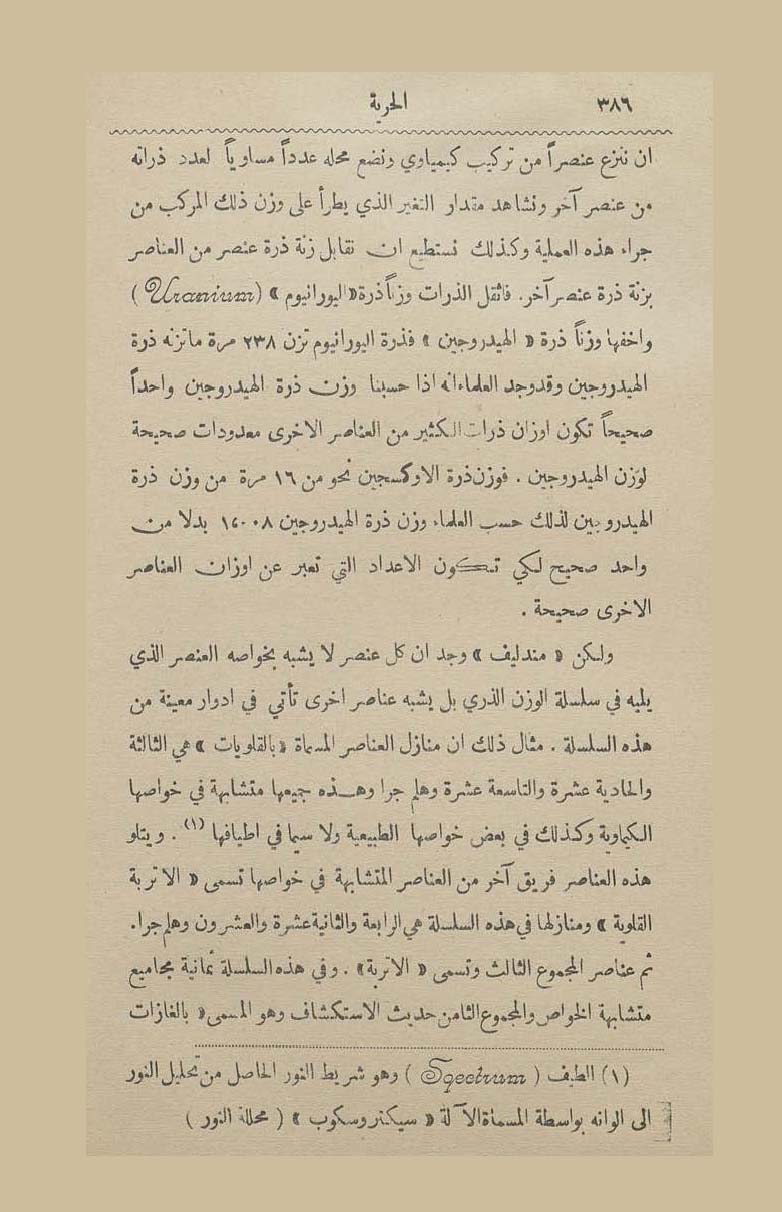 ٣٨٦
الحرية
ان ننزع عنصراً من تركيب كيمياوي ونضع محله عدداً مساوياً لعدد ذراته
من عنصر آخر ونشاهد مقدار التغير الذي يطرأ على وزن ذلك المركب من
جراء هذه العملية وكذلك نستطيع ان نقابل زنة ذرة عنصر من العناصر
بزنة ذرة عنصر آخر. فاثقل الذرات وزناً ذرة «اليورانيوم » (Uranium)
واخفها وزناً ذرة « الهيدروجين » فذرة اليورانيوم تزن ٢٣٨ مرة ما تزنه ذرة
الهيدروجين وقد وجد العلماء انه اذا حسبنا وزن ذرة الهيدروجين واحداً
صحيحاً تكون اوزان ذرات الكثير من العناصر الاخرى معدودات صحيحة
لوزن الهيدروجين . فوزن ذرة الاوكسجين نحو من ١٦ مرة من وزن ذرة
الهيدروجين لذلك حسب العلماء وزن ذرة الهيدروجين ١٬٠٠٨ بدلا من
واحد صحيح لكي تكون الاعداد التي تعبر عن اوزان العناصر
الاخرى صحيحة .
ولكن « مندليف » وجد ان كل عنصر لا يشبه بخواصه العنصر الذي
يليه في سلسلة الوزن الذري بل يشبه عناصر اخرى تأتي في ادوار معينة من
هذه السلسلة . مثال ذلك ان منازل العناصر المسماة «بالقلويات » هي الثالثة
والحادية عشرة والتاسعة عشرة وهلم جرا وهذه جميعها متشابهة في خواصها
الكيماوية وكذلك في بعض خواصها الطبيعية ولا سيما في اطيافها (١) . ويتلو
هذه العناصر فريق آخر من العناصر المتشابهة في خواصها تسمى « الاتربة
القلوية » ومنازلها في هذه السلسلة هي الرابعة والثانية عشرة والعشرون وهلم جرا.
ثم عناصر المجموع الثالث وتسمى « الاتربة» . وفي هذه السلسلة ثمانية مجاميع
متشابهة الخواص والمجموع الثامن حديث الاستكشاف وهو المسمى « بالغازات
(١) الطيف ( Sqectrum ) وهو شريط النور الحاصل من تحليل النور
الى الوانه بواسطة المسماة الآلة « سيكتروسكوب » ( محللة النور )